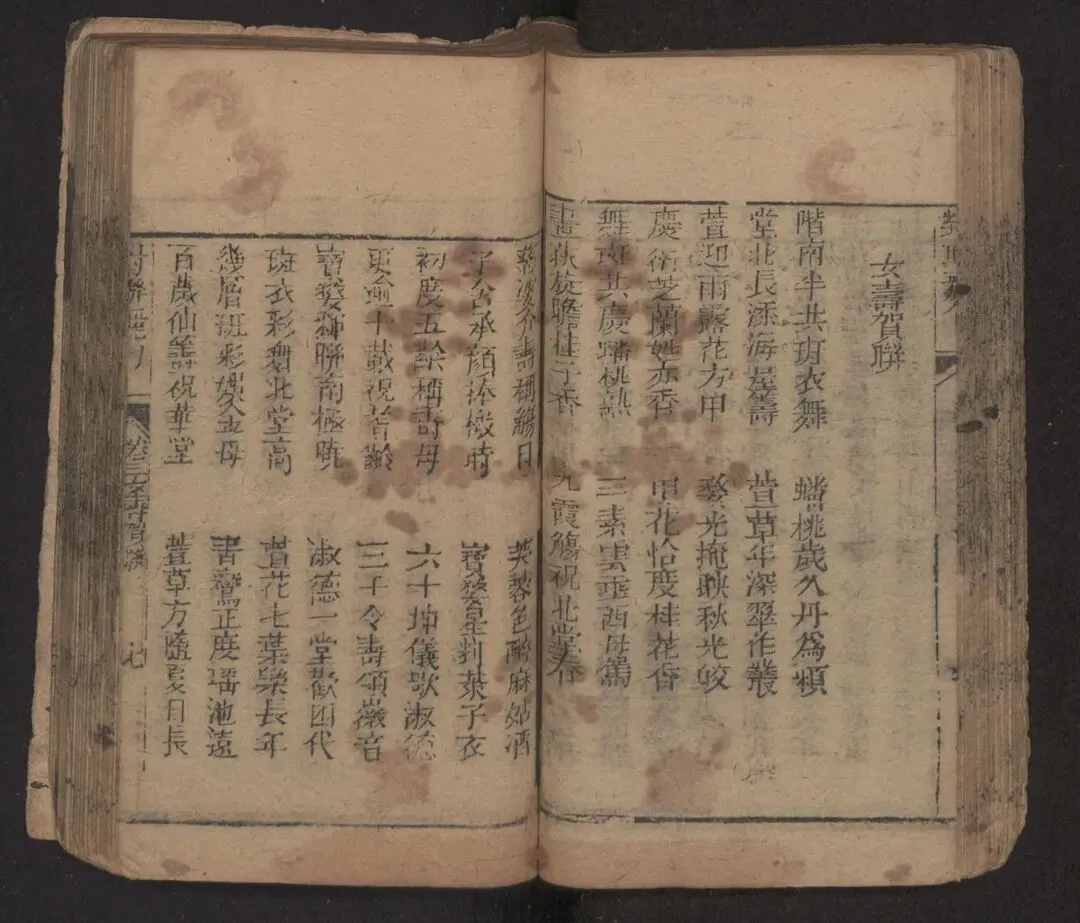 女壽賀聯
階南半共班衣舞 蟠桃歲久丹為頰
堂北長添海屋籌 萱草年深翠作叢
萱迎雨露花方甲 婺光掩映秋光皎
慶衍芝蘭姓亦香 甲花恰度桂花香
舞斑共慶蟠桃熟 三素雲垂西母
畫荻旋瞻桂子香 九霞觴祝北堂春
介壽稱觴日 芙蓉色醉麻姑酒
子舍承顏捧檄時 寶婺星 萊子衣
初度五 稱壽母 六十坤儀 淑德
更逾十載祝耆齡 三千令壽頌徽音
寶婺 聯南極曉 淑德一堂歡四代
斑衣彩舞北堂高 萱花七葉樂長年
幾層班彩 母 青鸞正度瑤池遠
百歲仙 祝華堂 萱草方蔭夏日長
卷三